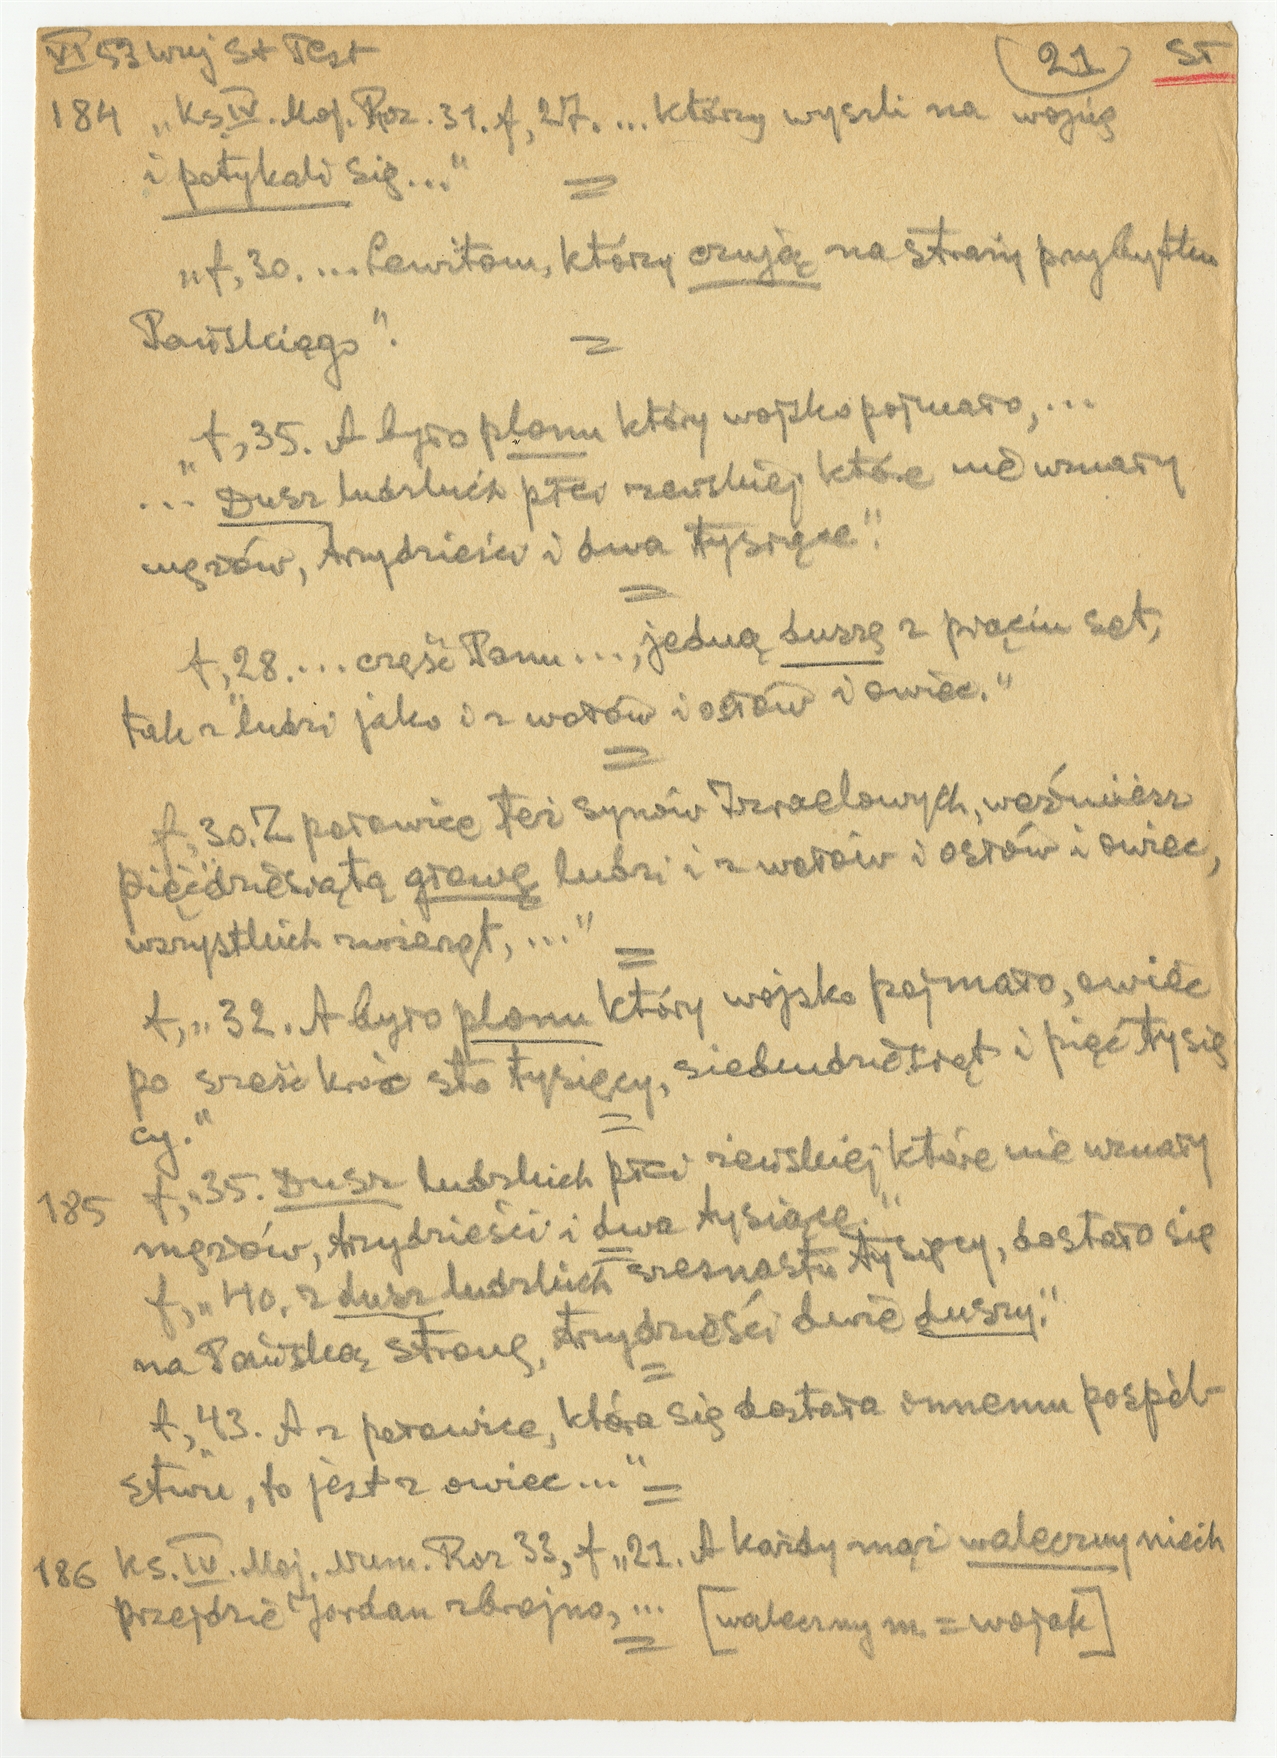 VI 53 wyj St Test (21) ST
184 „Ks. IV. Moj. Roz. 31. f, 27. ... którzy wyszli na wojnę
i potykali się..."
„f, 30. ... Lewitom, którzy czują na straży przybytku
Pańskiego".
„f, 35. A było plonu który wojsko pojmało, ...
... Dusz ludzkich płci żeńskiej które nie uznały
mężów, trzydzieści i dwa tysiące".
f, „28. ... część Panu ..., jedną duszę z pięciu set,
tak z ludzi jako i z wołów i osłów i owiec."
f, „30. Z połowice też synów Izraelowych, weźmiesz
pięćdziesiątą głowę ludzi i z wołów i osłów i owiec,
wszystkich zwierząt, ..."
f, „32. A było plonu który wojsko pojmało, owiec
po sześć kroć sto tysięcy, siedmdziesiąt i pięć tysię
cy."
185 f, „35. Dusz ludzkich płci żeńskiej które nie uznały
mężów, trzydzieści i dwa tysiące."
f, „40. z dusz ludzkich szesnastu tysięcy, dostało się
na Pańską stronę, trzydzieści dwie duszy."
f, „43. A z połowice, która się dostała onnemu pospól-
stwu, to jest z owiec..."
186 Ks. IV. Moj. Num. Roz 33, f „21. A każdy mąż waleczny niech
przejdzie Jordan zbrojno, ... [waleczny m. = wojak]